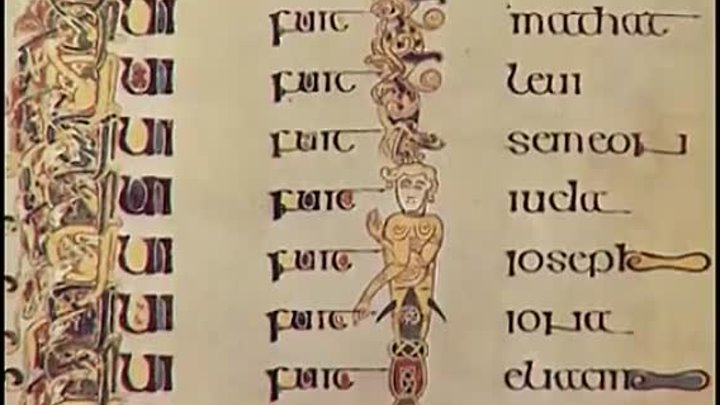 QUI fuit mathat
QUI fuit leui
QUI fuit semeon
QUI fuit iuda
QUI fuit ioseph
QUI fuit iona
QUI fuit eliacim